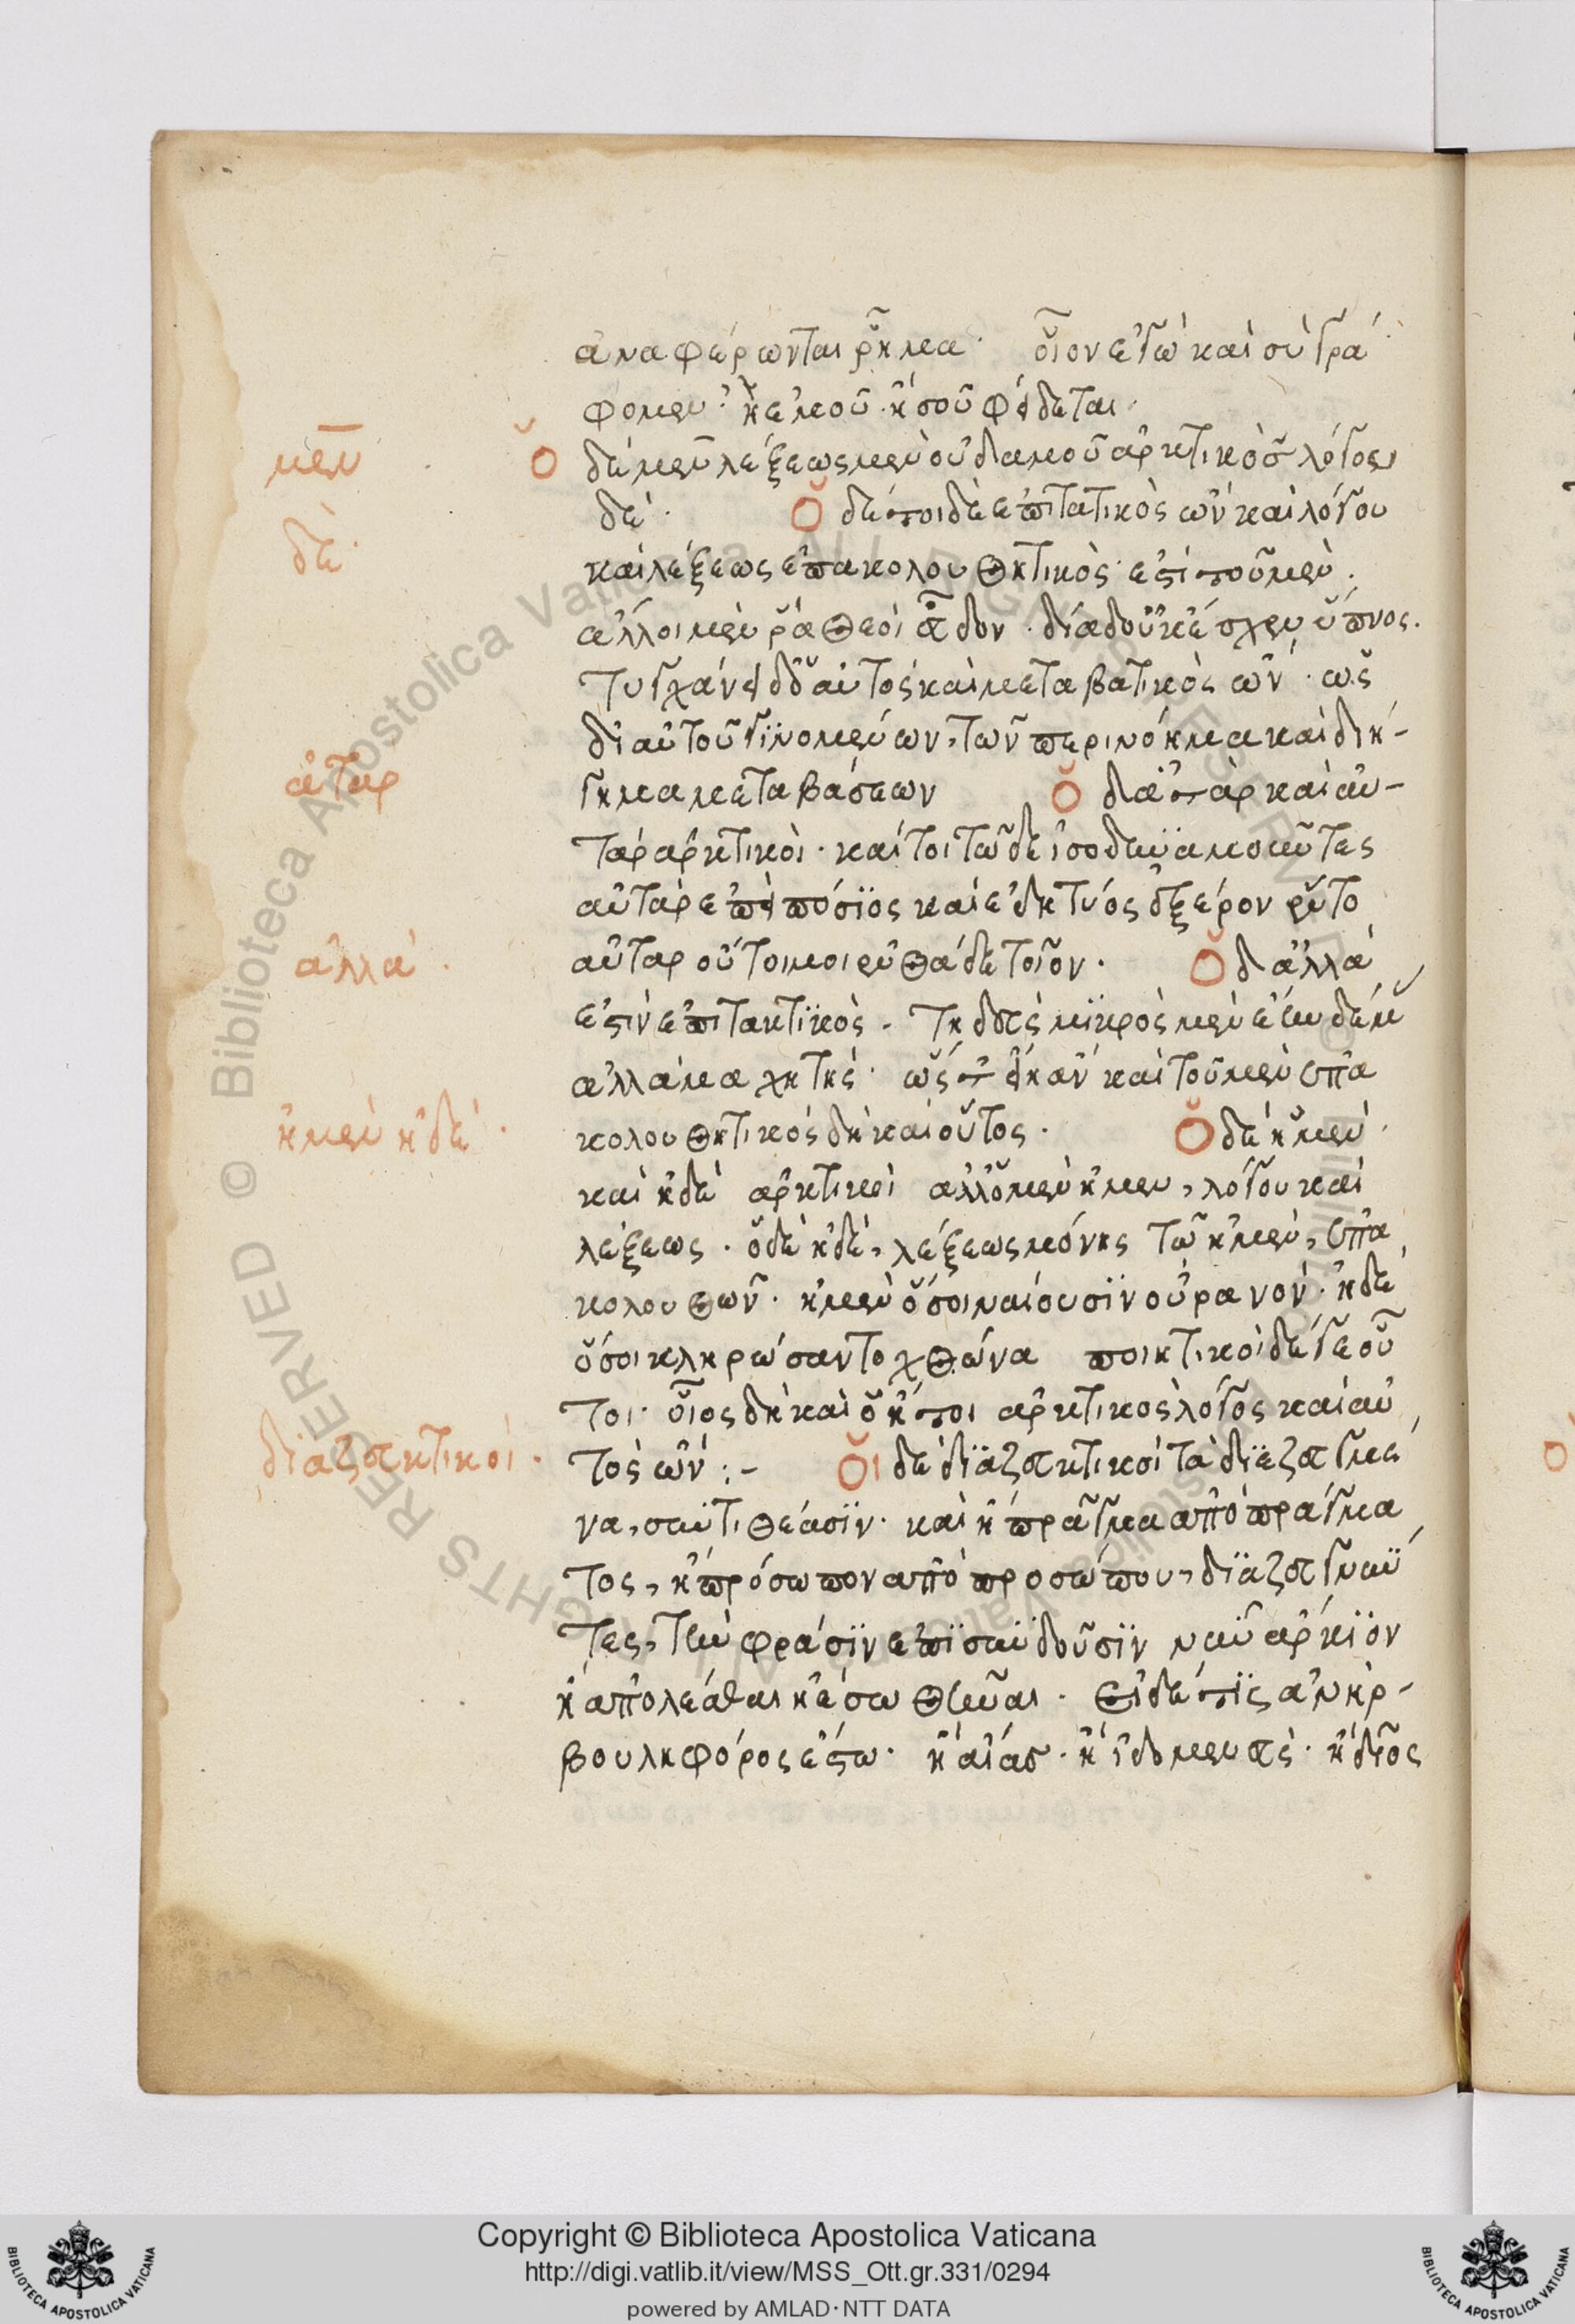 ἀναφέρωνται ῥῆμα· οἷον ἐγὼ καὶ σὺ γρά
φομεν· ἢ ἐμοῦ ἢ σοῦ φείδεται·
μὲν
Ὁ δὲ μὲν λέξεως μὲν οὐδαμοῦ ἀρκτικὸς λόγος
δέ· Ὁ δέ τοι δὲ ἐπιτατικὸς ὢν καὶ λόγου
δὲ·
καὶ λέξεως ἐπακολουθητικὸς ἐστὶ τοῦ μέν·
ἄλλοι μὲν ῥα θεοὶ εὗδον· δία δ' οὐκ ἔσχεν ὕπνος·
τυγχάνει δ' ὁ αὐτὸς καὶ μεταβατικὸς ὤν· ὡς
δι' αὐτοῦ γινομένων, τῶν περὶ νόημα καὶ διή-
ἀτὰρ
γημα μεταβάσεων Ὁ δὲ ἀτὰρ καὶ αὐ-
τὰρ ἀρκτικοὶ· καί τοι τῶ δὲ ἰσοδυναμοῦντες
αὐτὰρ ἐπεὶ πόσιος καὶ ἐδητύος ἐξ ἔρον ἕντο
ἀλλὰ·
αὐτὰρ οὔτοι μοι ἐνθάδε τοῖον· Ὁ δ' ἀλλὰ
ἐστὶν ἐπιτακτικὸς· τυδεύς μικρὸς μὲν ἔην δέμ
ἀλλὰ μαχητής· ὡς
ἠμὲν ἠδὲ·
κολουθητικὸς δὴ καὶ οὗτος· Ὁ δὲ ἠμὲν
καὶ ἠδὲ ἀρκτικοὶ ἀλλ' ὁ μὲν ἠμὲν, λόγου καὶ
λέξεως· ὁ δὲ ἠδὲ, λέξεως μόνης τῶ ἠμὲν, ἐπα
κολουθῶν· ἠμὲν ὅσοι ναίουσιν οὐρανόν· ἠδὲ
ὅσοι κληρώσαντο χθόνα ποιητικοὶ δέ γε οὗ
τοι· οἷος δὴ καὶ ὁ ἤτοι ἀρκτικὸς λόγος καὶ αὐ
διαζευκτικοί·
τὸς ὤν:- Οἱ δὲ διαζευκτικοὶ τὰ διεζευγμέ
να, συντιθέασιν· καὶ ἢ πρᾶγμα ἀπὸ πράγμα
τος, ἢ πρόσωπον ἀπὸ προσώπου, διαζευγνύν
τες, τὴν φράσιν ἐπισυνδοῦσιν νῦν ἄρκιον
ἢ ἀπολέσθαι ἠὲ σωθῆναι· εἷς δέ τις ἀνὴρ-
βουληφόρος ἔστω· ἢ αἴας· ἢ ἰδομενεὺς· ἢ δῖος